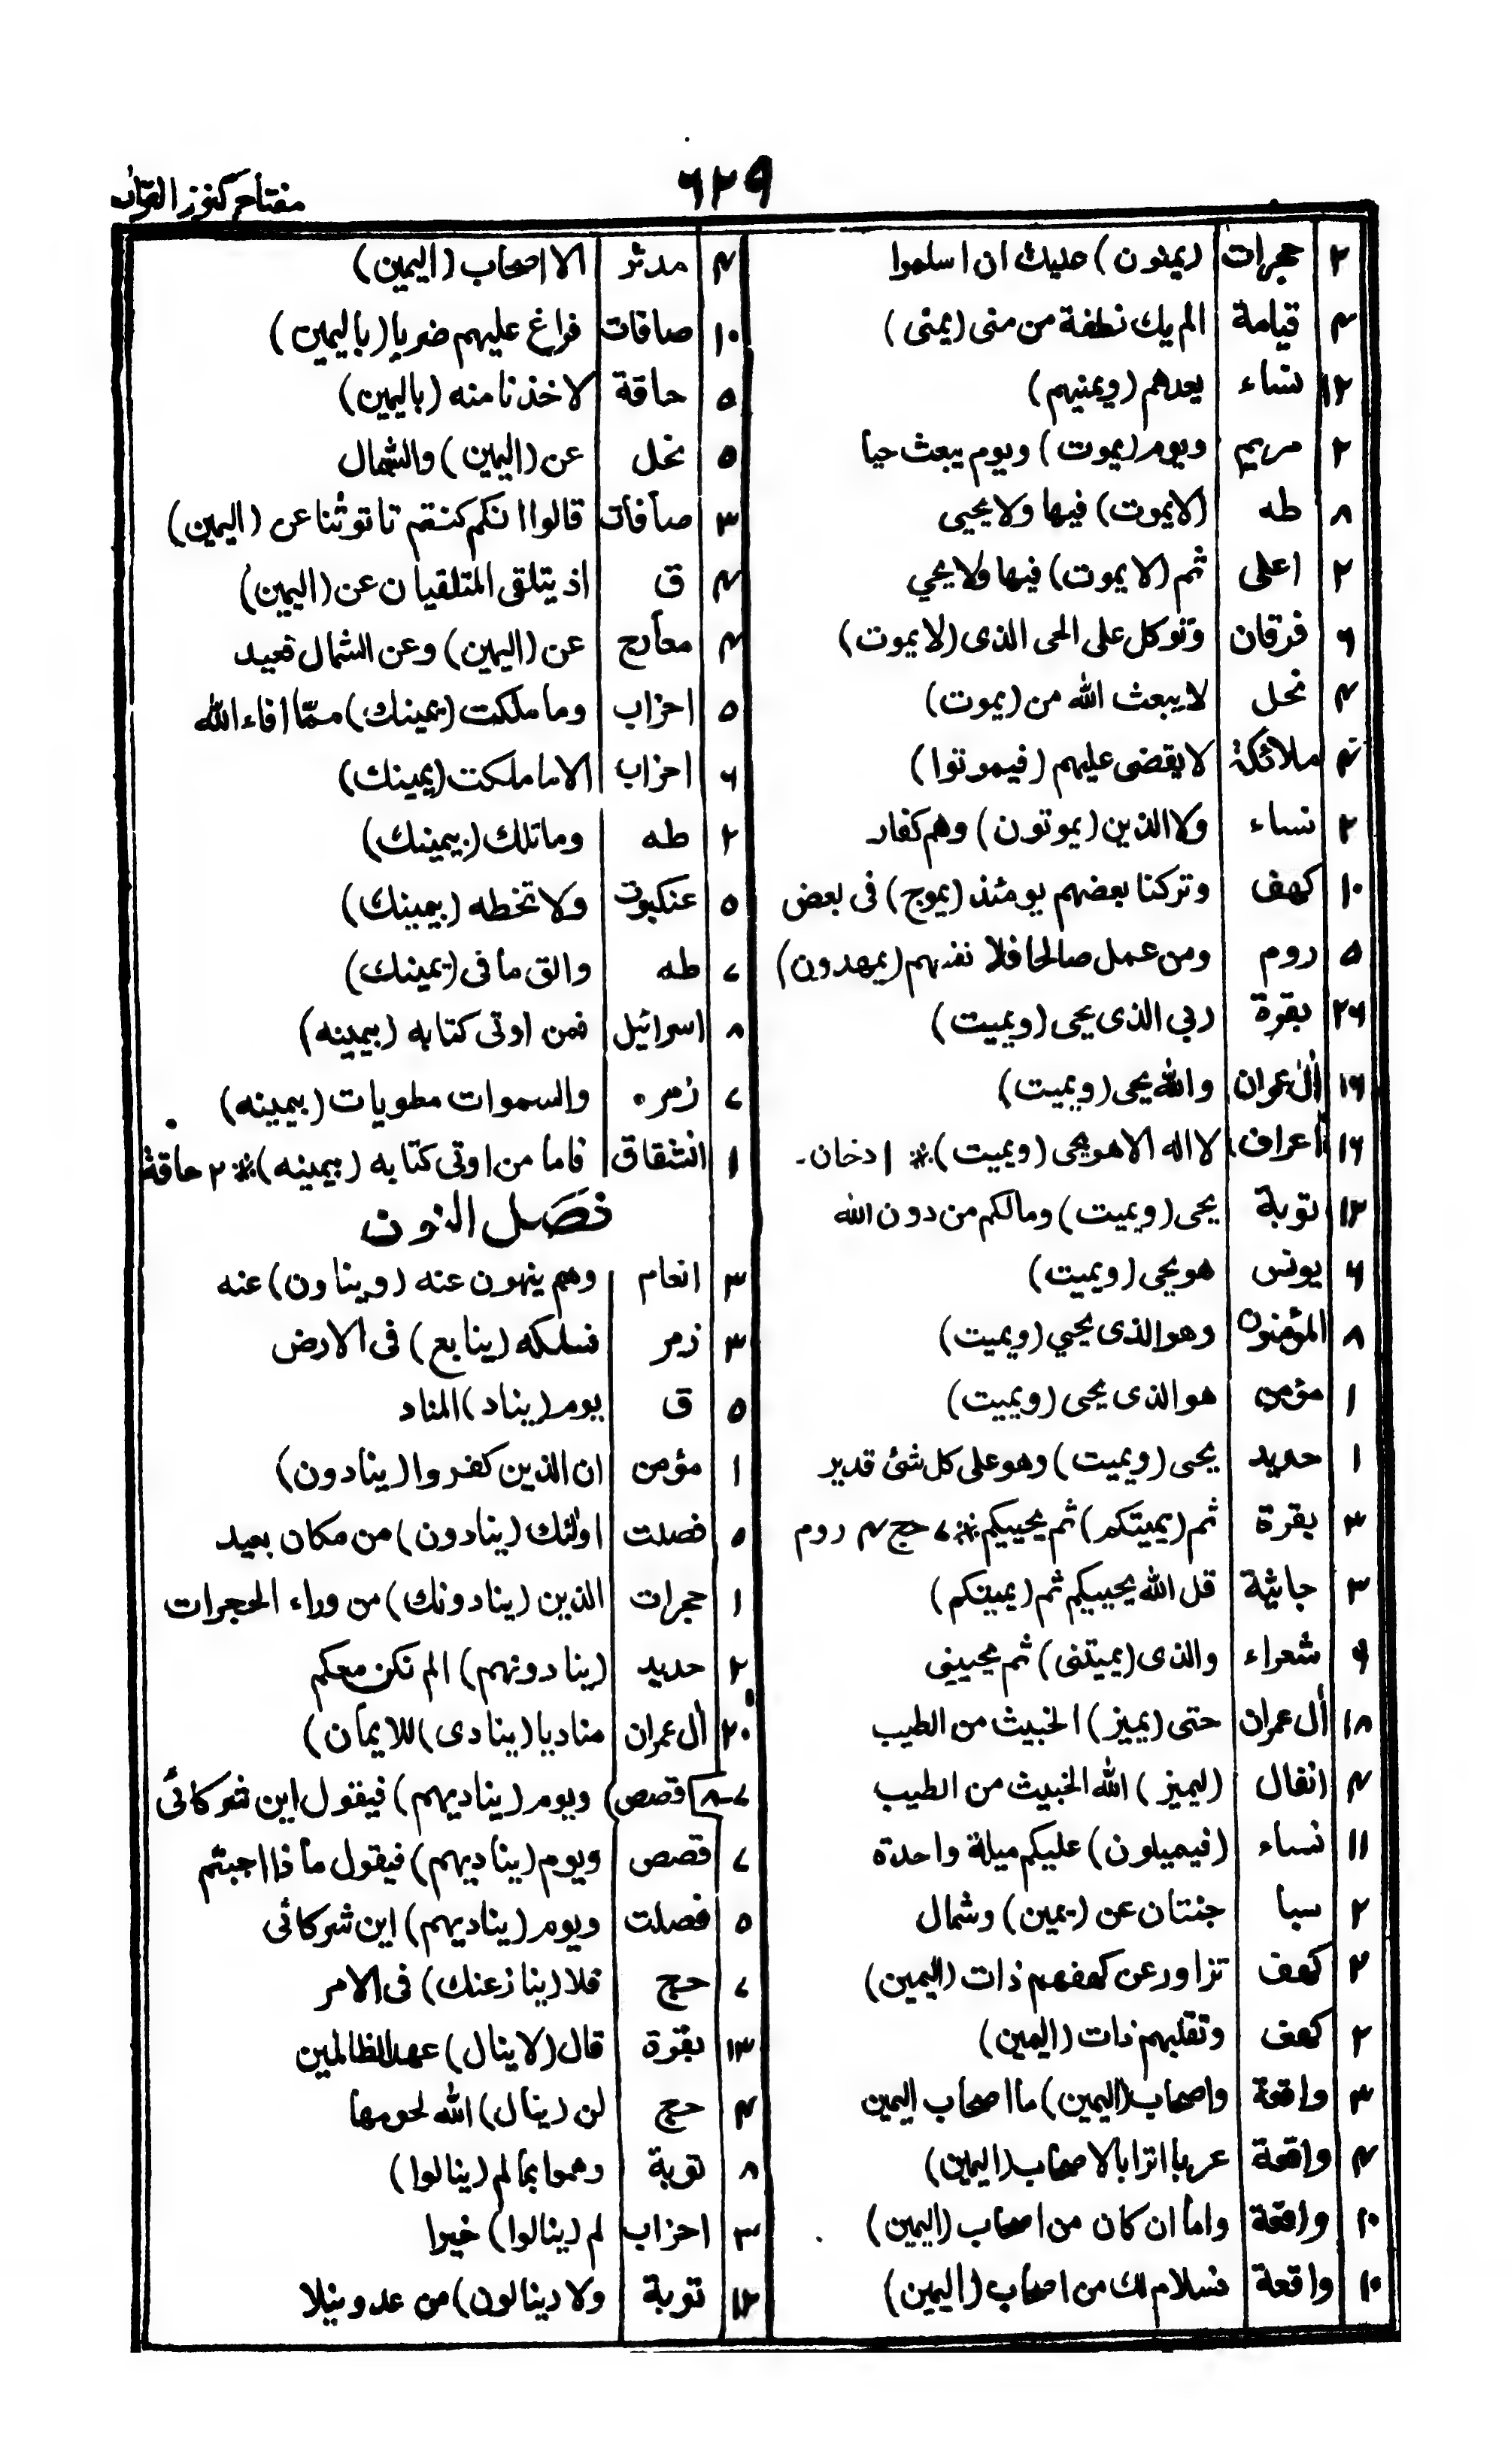 مفتاح كنوز القرآن
٦٢٩
٢ حجرات (يمنون) عليك ان اسلموا
٤ قيامة الم يك نطفة من منى (يمنى)
١٢ نساء يعدهم (ويمنيهم)
٢ مريم ويوم (يموت) ويوم يبعث حيا
٨ طه (لايموت) فيها ولا يحيى
٢ اعلى ثم (لايموت) فيها ولا يحيي
٦ فرقان وتوكل على الحى الذى (لايموت)
٤ نحل لا يبعث الله من (يموت)
٤ ملائكة لا يقضى عليهم (فيموتوا)
٢ نساء ولا الذين (يموتون) وهم كفار
١٠ كهف وتركنا بعضهم يومئذ (يموج) فى بعض
٥ روم ومن عمل صالحا فلا نفسهم (يمهدون)
٢٦ بقرة ربي الذى يحى (ويميت)
١٦ أل عمران والله يحى (ويميت)
١٦ أعراف لا اله الا هو يحى (ويميت)※ ١ دخان۔
١٢ توبة يحى (ويميت) ومالكم من دون الله
٦ يونس هو يحى (ويميت)
٨ المؤمنون وهو الذى يحيي (ويميت)
١ مؤمن هو الذى يحى (ويميت)
١ حديد يحى (ويميت) وهو على كل شئ قدير
٣ بقرة ثم (يميتكم) ثم يحييكم※ ٧ حج ٤ روم
٣ جاثية قل الله يحييكم ثم (يميتكم)
٩ شعراء والذى (يميتنى) ثم يحييني
١٨ أل عمران حتى (يميز) الخبيث من الطيب
٤ انفال (ليميز) الله الخبيث من الطيب
١١ نساء (فيميلون) عليكم ميلة واحدة
٢ سبا جنتان عن (يمين) وشمال
٢ كهف تزاور عن كهفهم ذات (اليمين)
٢ كهف وتقلبهم ذات (اليمين)
٣ واقعة واصحاب (اليمين) ما اصحاب اليمين
٤ واقعة عربا اترابا لاصحاب (اليمين)
١٠ واقعة واما ان كان من اصحاب (اليمين)
١٠ واقعة فسلام لك من اصحاب (اليمين)
٤ مدثر الا اصحاب (اليمين)
١٠ صافات فراغ عليهم ضربا (باليمين)
٥ حاقة لاخذنا منه (باليمين)
٥ نحل عن (اليمين) والشمال
٣ صافات قالوا انكم كنتم تاتوننا عن (اليمين)
٤ ق اذ يتلقى المتلقيان عن (اليمين)
٤ معارج عن (اليمين) وعن الشمال قعيد
٥ احزاب وما ملكت (يمينك) ممّا افاء الله
٦ احزاب الا ما ملكت (يمينك)
٢ طه وما تلك (بيمينك)
٥ عنكبوت ولا تخطه (بيمينك)
٧ طه والق ما فى (يمينك)
٨ اسرائيل فمن اوتى كتابه (بيمينه)
٧ زمر والسموات مطويات (بيمينه)
١ انشقاق فاما من اوتى كتابه (بيمينه)※ ٢ حاقة
فصل النون
٣ انعام وهم ينهون عنه (وينأون) عنه
٣ زمر فسلكه (ينابع) فى الارض
٥ ق يوم (يناد) المناد
١ مؤمن ان الذين كفروا (ينادون)
٥ فصلت اولئك (ينادون) من مكان بعيد
١ حجرات الذين (ينادونك) من وراء الحجرات
٢ حديد (ينادونهم) الم نكن معكم
٢٠ أل عمران مناديا (ينادى) للايمان)
٧-٨ قصص ويوم (يناديهم) فيقول اين شركائى
٧ قصص ويوم (يناديهم) فيقول ماذا اجبتم
٥ فصلت ويوم (يناديهم) اين شركائى
٧ حج فلا (ينازعنك) فى الامر
١٣ بقرة قال (لاينال) عهد الظالمين
٤ حج لن (ينال) الله لحومها
٨ توبة وهموا بما لم (ينالوا)
٣ احزاب لم (ينالوا) خيرا
١٢ توبة ولا (ينالون) من عدو نيلا